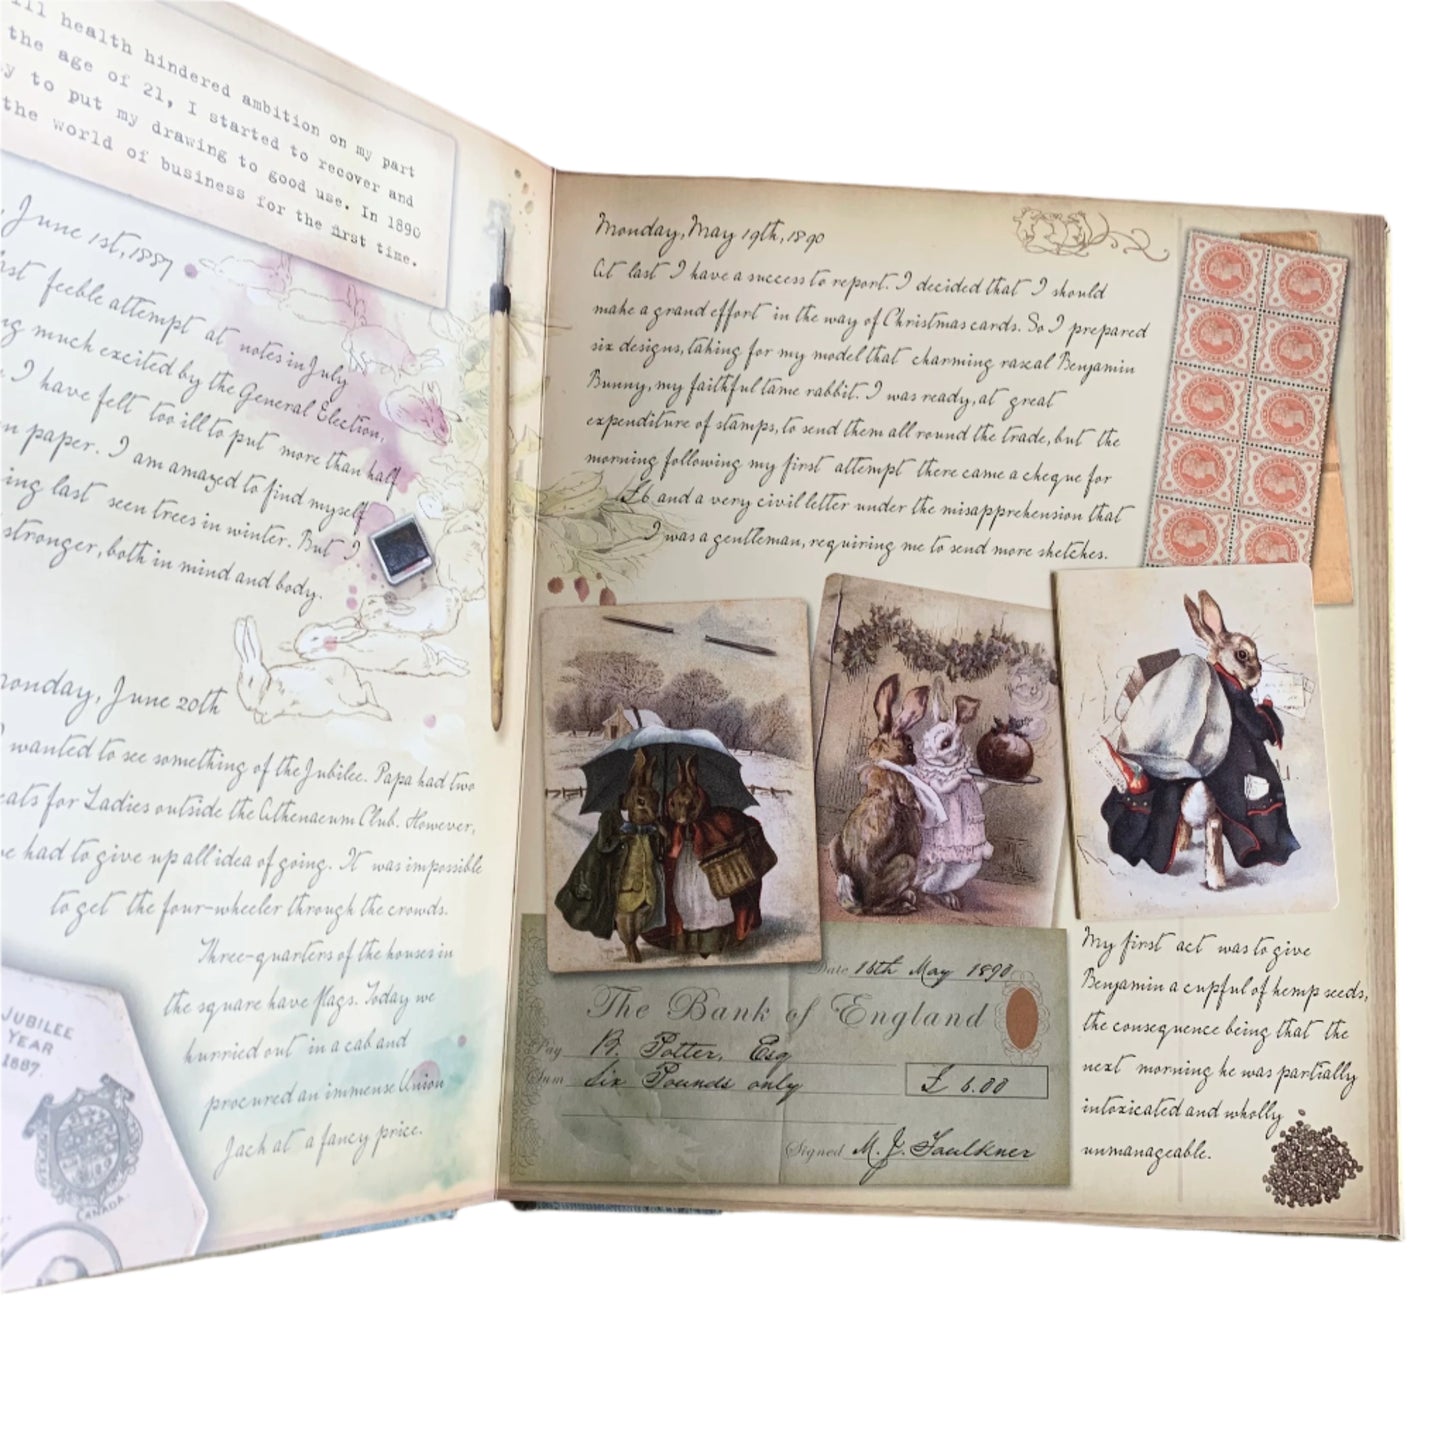 ill health hindered ambition on my part
the age of 21, I started to recover and
to put my drawing to good use. In 1890
the world of business for the first time.
June 1st, 1887
feeble attempt at notes in July
much excited by the General Election,
I have felt too ill to put more than half
on paper. I am amazed to find myself
last seen trees in winter. But I
stronger, both in mind and body.
Monday, June 20th
I wanted to see something of the Jubilee. Papa had two
seats for Ladies outside the Athenaeum Club. However,
we had to give up all idea of going. It was impossible
to get the four-wheeler through the crowds.
Three-quarters of the houses in
the square have flags. Today we
hurried out in a cab and
procured an immense Union
Jack at a fancy price.
JUBILEE
YEAR
1887.
CANADA
Monday, May 19th, 1890
At last I have a success to report. I decided that I should
make a grand effort in the way of Christmas cards. So I prepared
six designs, taking for my model that charming rascal Benjamin
Bunny, my faithful tame rabbit. I was ready, at great
expenditure of stamps, to send them all round the trade, but the
morning following my first attempt there came a cheque for
£6 and a very civil letter under the misapprehension that
I was a gentleman, requiring me to send more sketches.
Date 16th May 1890
The Bank of England
Pay B. Potter, Esq
Sum Six Pounds only £ 6.00
Signed M. J. Faulkner
My first act was to give
Benjamin a cupful of hemp seeds,
the consequence being that the
next morning he was partially
intoxicated and wholly
unmanageable.